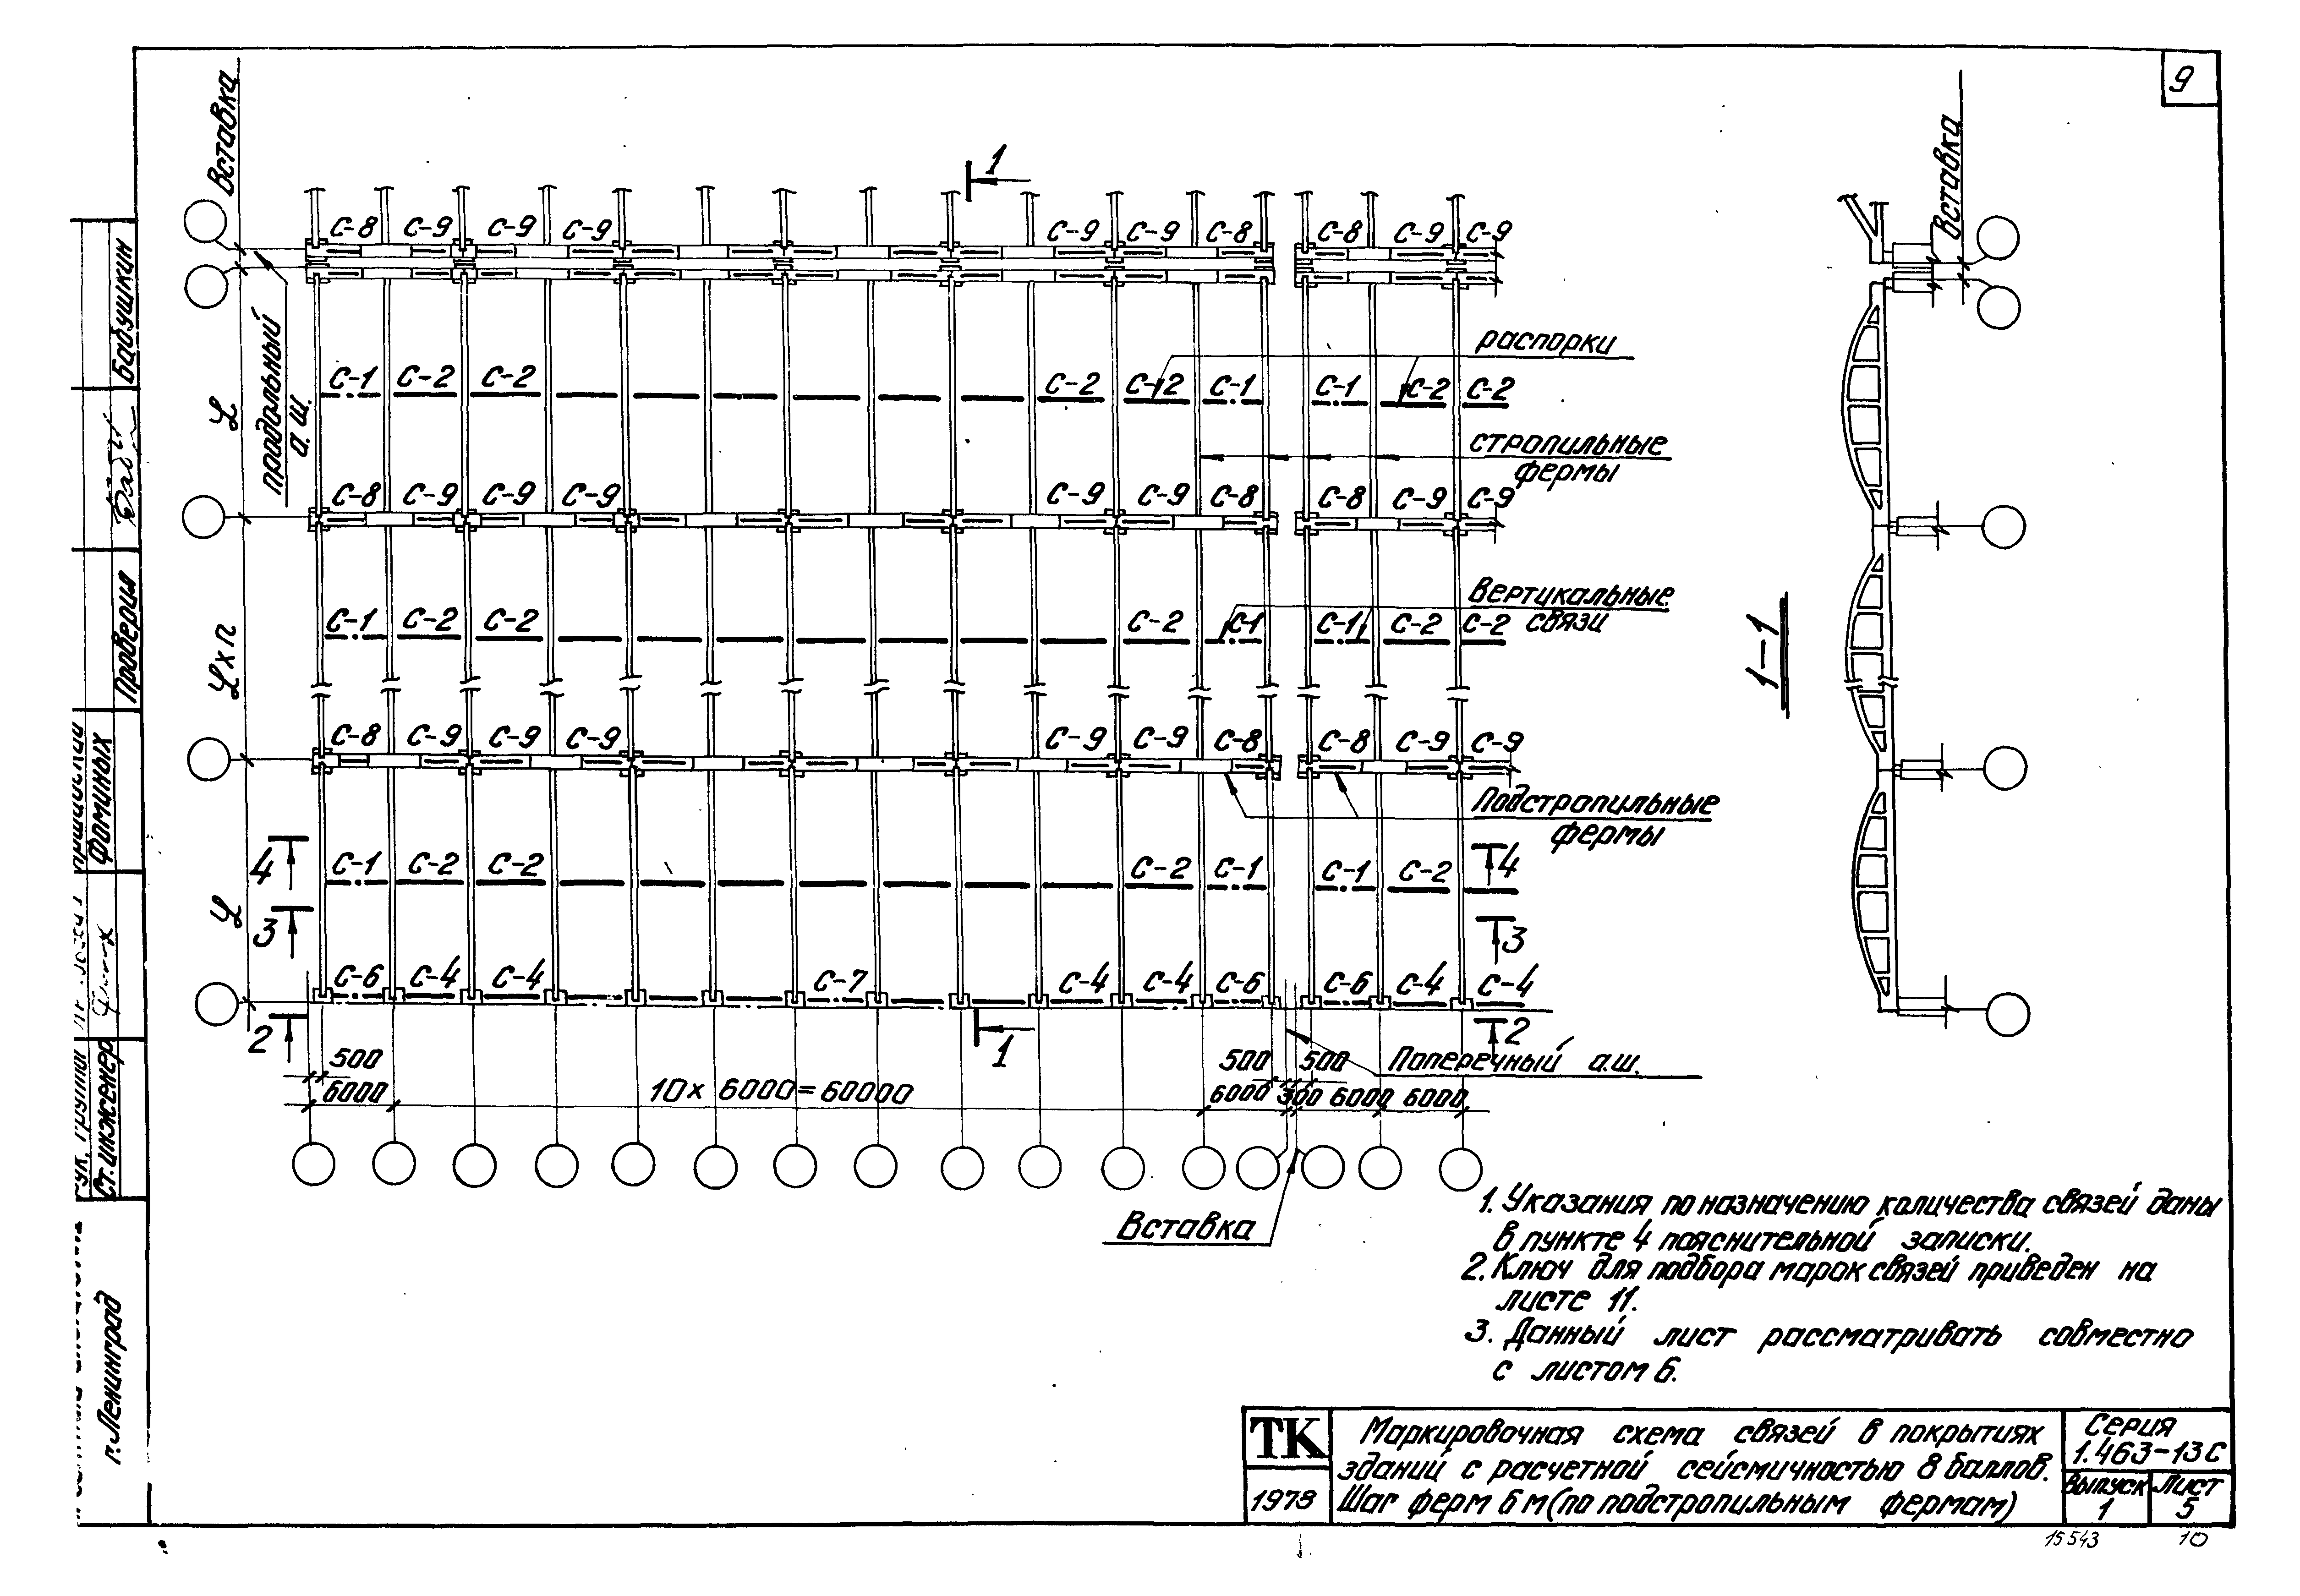 9
Вставка
Вставка
1
С-8 С-9 С-9 С-9 С-9 С-9 С-8 С-8 С-9 С-9
распорки
С-1 С-2 С-2 С-2 С-2 С-1 С-1 С-2 С-2
L
продольный
а.ш.
стропильные
фермы
С-8 С-9 С-9 С-9 С-9 С-9 С-8 С-8 С-9 С-9
Вертикальные
связи
С-1 С-2 С-2 С-2 С-1 С-1 С-2 С-2
L x n
1-1
С-8 С-9 С-9 С-9 С-9 С-9 С-8 С-8 С-9 С-9
Подстропильные
фермы
4 С-1 С-2 С-2 С-2 С-1 С-1 С-2 4
L
3 3
С-6 С-4 С-4 С-7 С-4 С-4 С-6 С-6 С-4 С-4
2 1 2
500 500 500 Поперечный а.ш.
6000 10 х 6000 = 60000 6000 300 6000 6000
Вставка
1. Указания по назначению количества связей даны
в пункте 4 пояснительной записки.
2. Ключ для подбора марок связей приведен на
листе 11.
3. Данный лист рассматривать совместно
с листом 6.
ТК
1978
Маркировочная схема связей в покрытиях
зданий с расчетной сейсмичностью 8 баллов.
Шаг ферм 6 м (по подстропильным фермам)
Серия
1.463-13С
Выпуск
1
Лист
5
15543 10
Бабушкин
Проверил
Фоминых
Ст. инженер
г. Ленинград